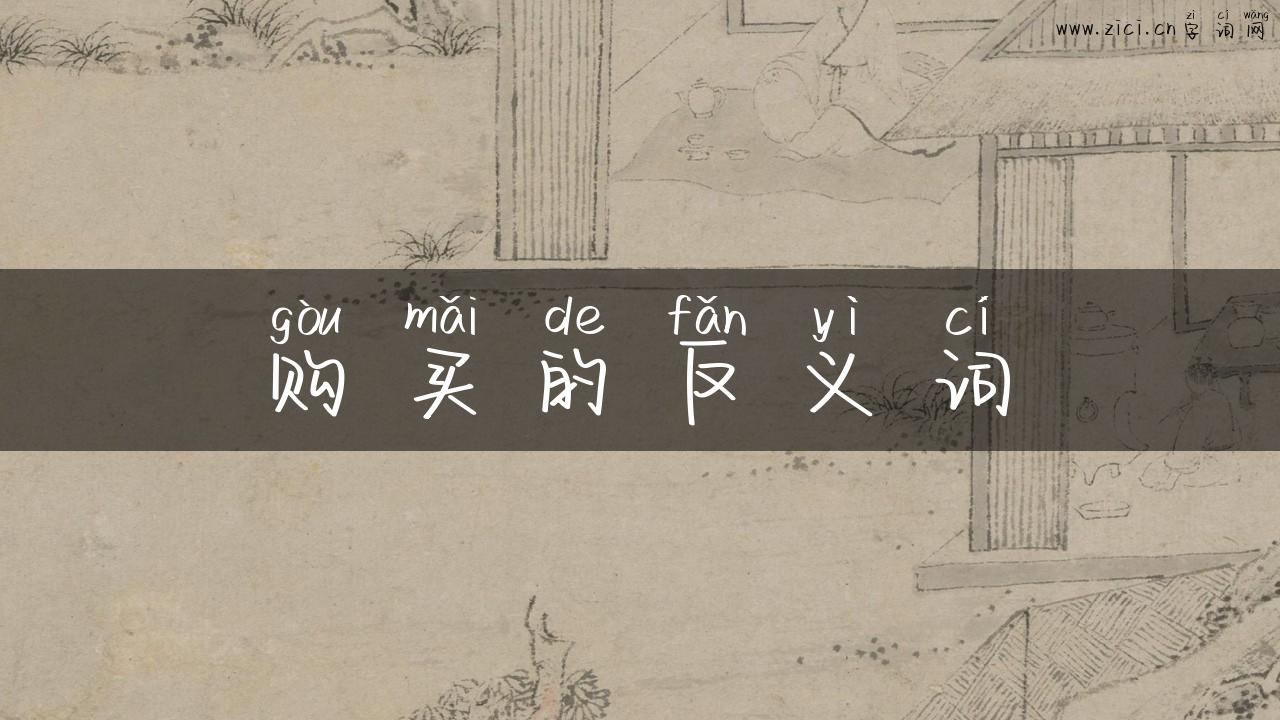 zì cí wǎng
www.zici.cn 字词网
gòu mǎi de fǎn yì cí
购买的反义词